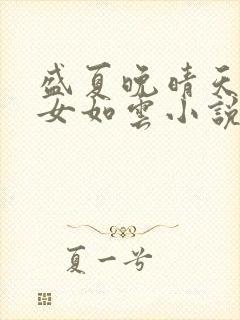 盛夏晚晴天
女如雲小說
夏一兮